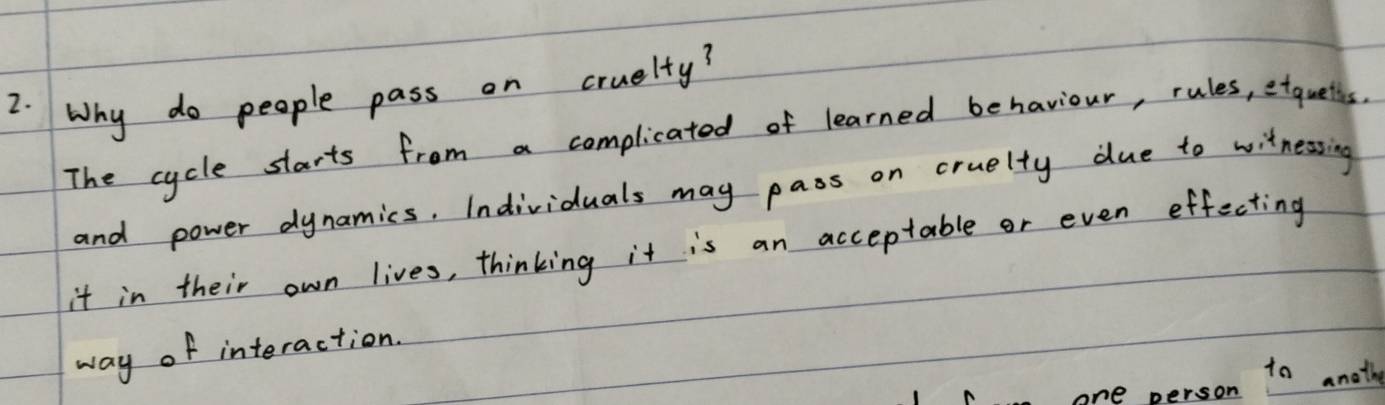 2. Why do people pass on cruelty?
The cycle starts from a complicated of learned behaviour, rules,
and power dynamics. Individuals may pass on cruelty due to witnessing
it in their own lives, thinking it is an acceptable or even effecting
way of interaction.
one person to anothe